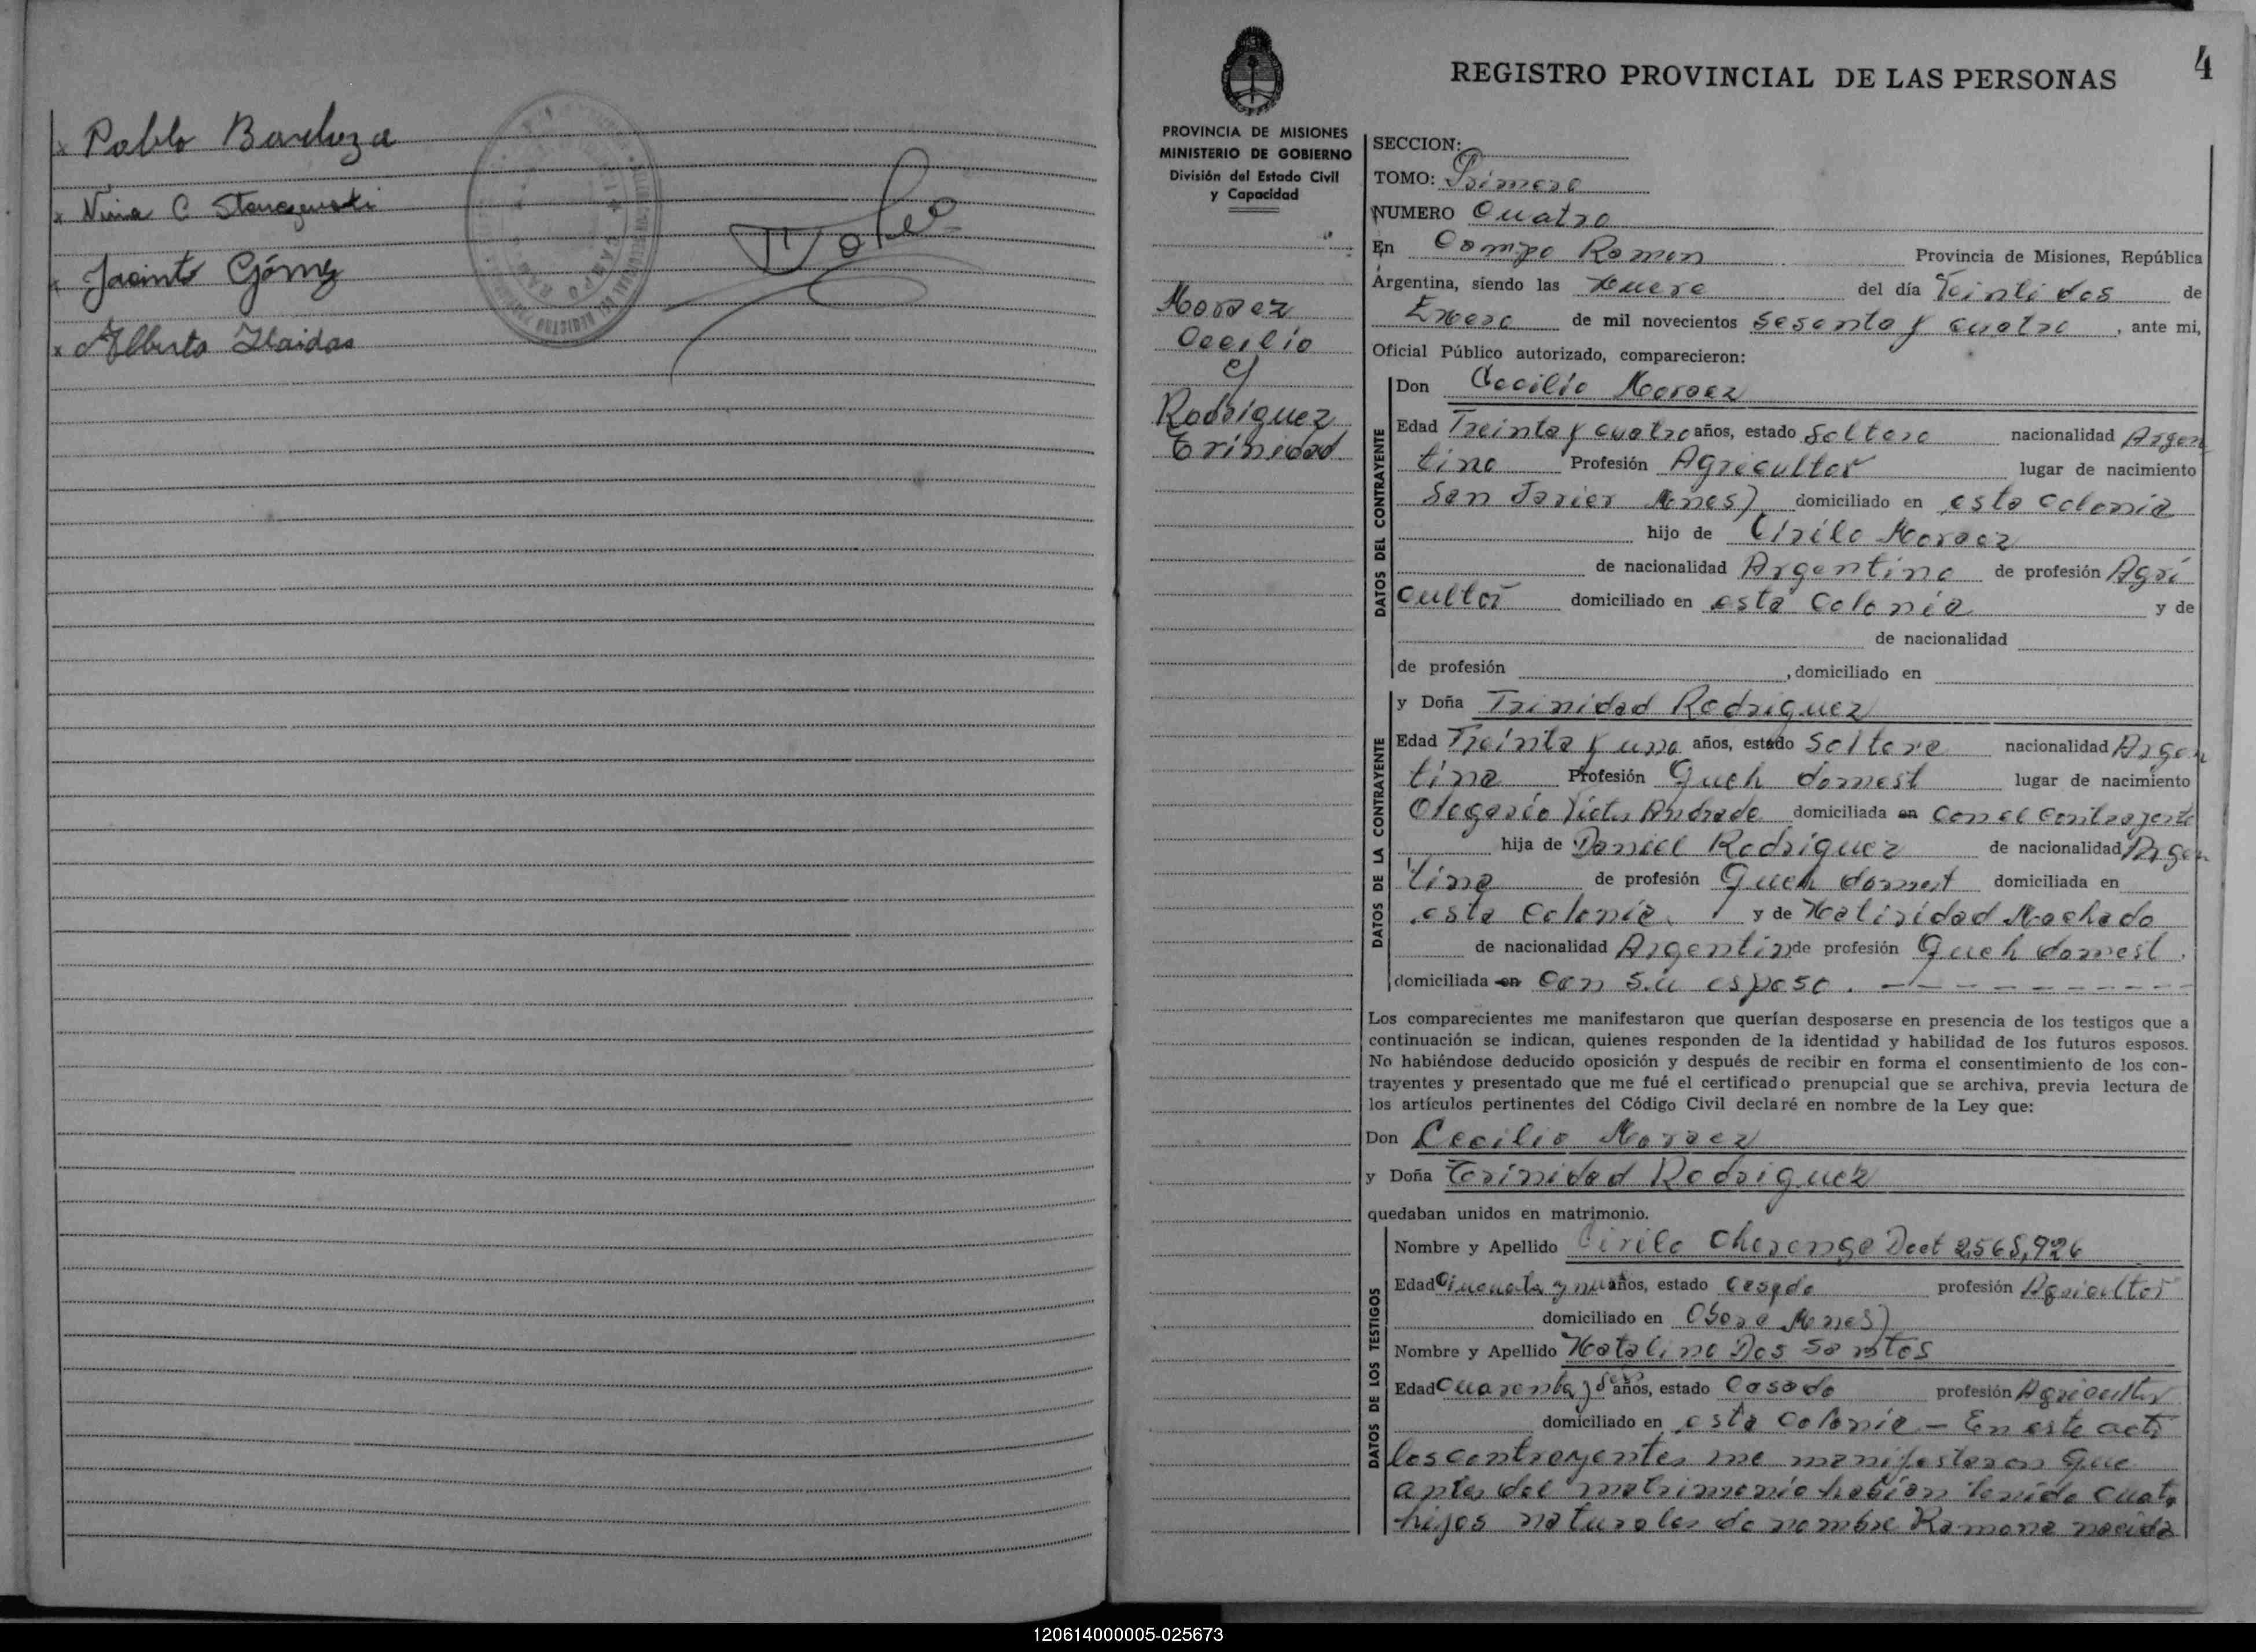 x Pablo Barboza
x Nina C
x Jacinto Gómez
x Alberto
4
REGISTRO PROVINCIAL DE LAS PERSONAS
PROVINCIA DE MISIONES
MINISTERIO DE GOBIERNO
División del Estado Civil
y Capacidad
Moraez
Cecilio
y
Rodriguez
Trinidad
SECCION:
TOMO: Primero
NUMERO Cuatro
En Campo Ramon Provincia de Misiones, República
Argentina, siendo las Nueve del día Veinti dos de
Enero de mil novecientos sesenta y cuatro, ante mi,
Oficial Público autorizado, comparecieron:
Don Cecilio Moraez
DATOS DEL CONTRAYENTE
Edad Treinta y cuatro años, estado Soltero nacionalidad Argen
tino Profesión Agricultor lugar de nacimiento
San Javier Mnes) domiciliado en esta colonia
hijo de Cirilo Moraez
de nacionalidad Argentino de profesión Agri
cultor domiciliado en esta Colonia y de
de nacionalidad
de profesión , domiciliado en
y Doña Trinidad Rodriguez
DATOS DE LA CONTRAYENTE
Edad Treinta y una años, estado Soltera nacionalidad Argen
tina Profesión Queh domest lugar de nacimiento
Olegario Victor Andrade domiciliada en con el contrayente
hija de Daniel Rodriguez de nacionalidad Argen
tina de profesión Queh domest domiciliada en
esta Colonia. y de Natividad Machado
de nacionalidad Argentin de profesión Queh domest.
domiciliada en con su esposo. - - - - - - - - -
Los comparecientes me manifestaron que querían desposarse en presencia de los testigos que a
continuación se indican, quienes responden de la identidad y habilidad de los futuros esposos.
No habiéndose deducido oposición y después de recibir en forma el consentimiento de los con-
trayentes y presentado que me fué el certificado prenupcial que se archiva, previa lectura de
los artículos pertinentes del Código Civil declaré en nombre de la Ley que:
Don Cecilio Moraez
y Doña Trinidad Rodriguez
quedaban unidos en matrimonio.
DATOS DE LOS TESTIGOS
Nombre y Apellido Cirilo 2,568,926
Edad años, estado Casado profesión Agricultor
domiciliado en Obera Mnes)
Nombre y Apellido Natalino Dos Santos
Edad Cuarenta y años, estado Casado profesión Agricultor
domiciliado en esta Colonia - En este acto
los contrayentes me manifestaron que
antes del matrimonio habian tenido cuatro
hijos naturales de nombre Ramona nacida
120614000005-025673